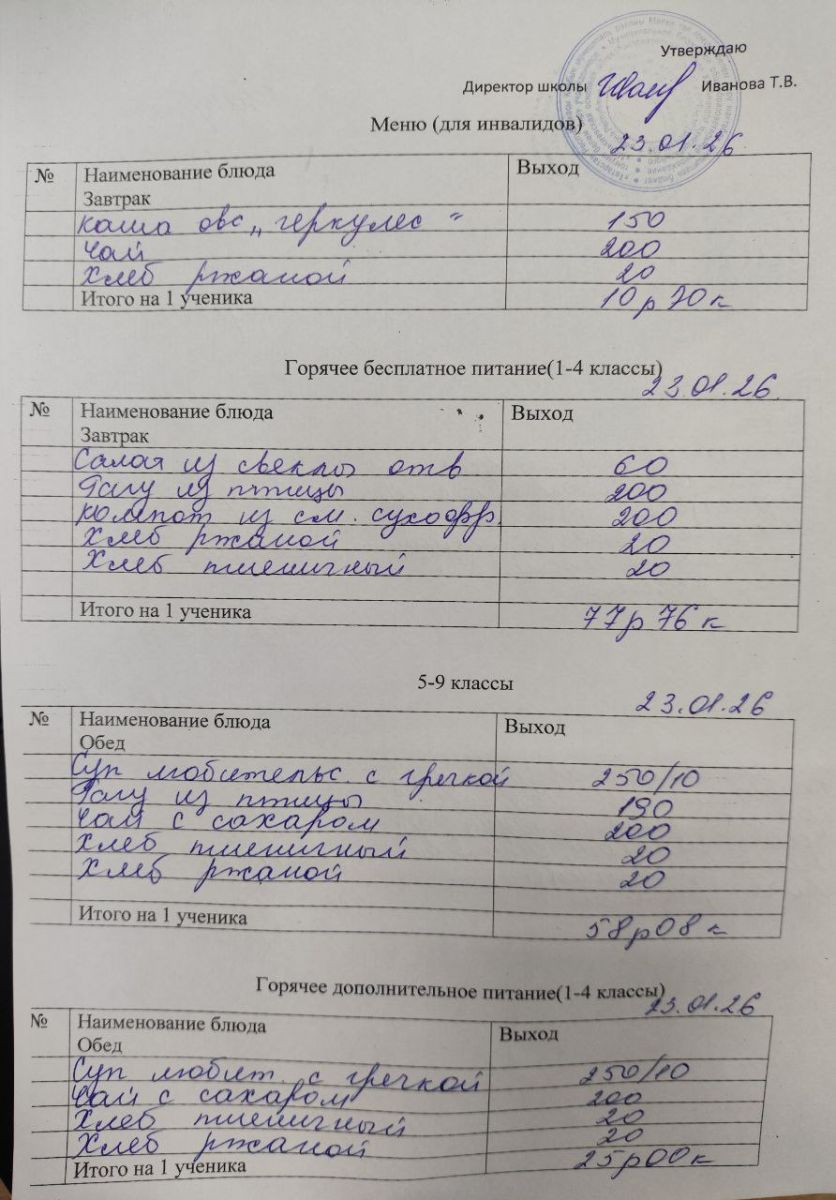 Утверждаю
Директор школы Иванова Т.В.
Меню (для инвалидов)
23.01.26
№ Наименование блюда Выход
Завтрак
каша овс „геркулес" 150
чай 200
хлеб ржаной 20
Итого на 1 ученика 10р70к
Горячее бесплатное питание(1-4 классы)
23.01.26
№ Наименование блюда Выход
Завтрак
Салат из свеклы отв 60
Рагу из птицы 200
компот из см. сухофр. 200
Хлеб ржаной 20
Хлеб пшеничный 20
Итого на 1 ученика 77р76к
5-9 классы
23.01.26
№ Наименование блюда Выход
Обед
Суп любительс с гречкой 250/10
Рагу из птицы 190
Чай с сахаром 200
Хлеб пшеничный 20
Хлеб ржаной 20
Итого на 1 ученика 58р08к
Горячее дополнительное питание(1-4 классы)
23.01.26
№ Наименование блюда Выход
Обед
Суп любит. с гречкой 250/10
Чай с сахаром 200
Хлеб пшеничный 20
Хлеб ржаной 20
Итого на 1 ученика 25р00к